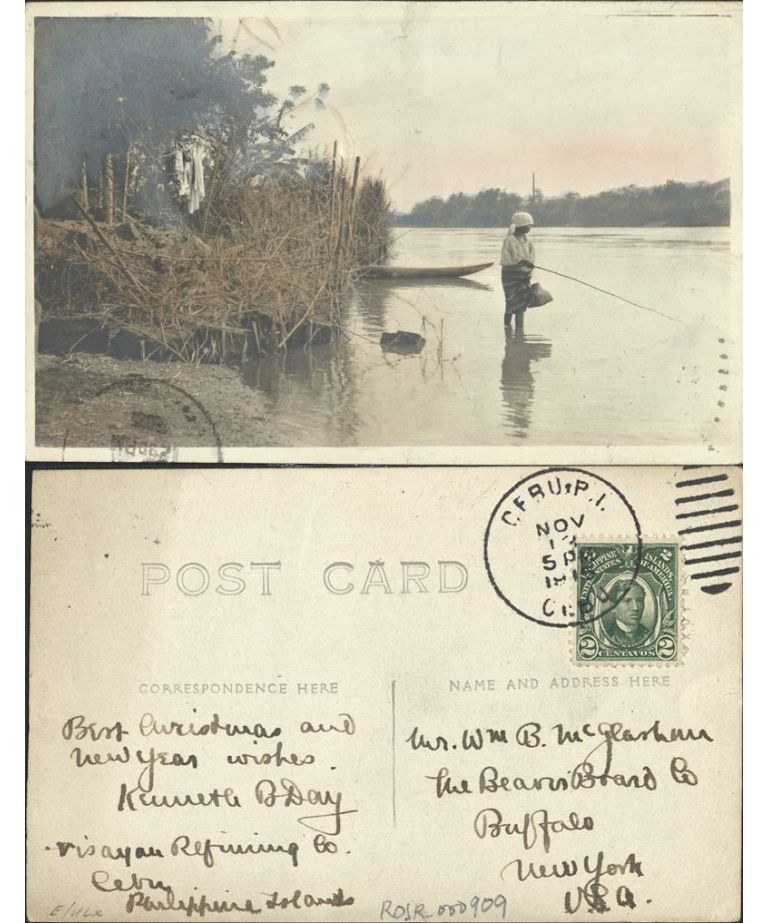 CEBU, P.I.
NOV
5 P
CEBU
PHILIPPINE ISLANDS
UNITED STATES OF AMERICA
2 CENTAVOS 2
POST CARD
CORRESPONDENCE HERE
NAME AND ADDRESS HERE
Best Christmas and
New Year wishes.
Kenneth B Day
Visayan Refining Co.
Cebu
Philippine Islands
Mr. Wm B. McGlashan
The Beaver Board Co
Buffalo
New York
USA.
RDSR_000909